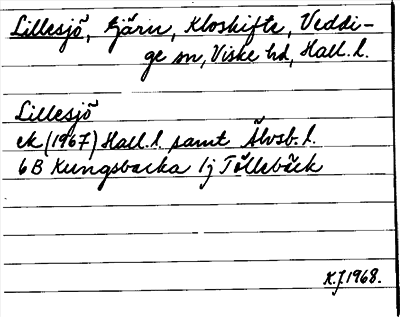 Lillesjö, tjärn, Kloskifte, Veddi-
ge sn, Viske hd, Hall. l.
Lillesjö
ek (1967) Hall. l. samt Älvsb. l.
6B Kungsbacka 1j Tölleböck
K.J. 1968.